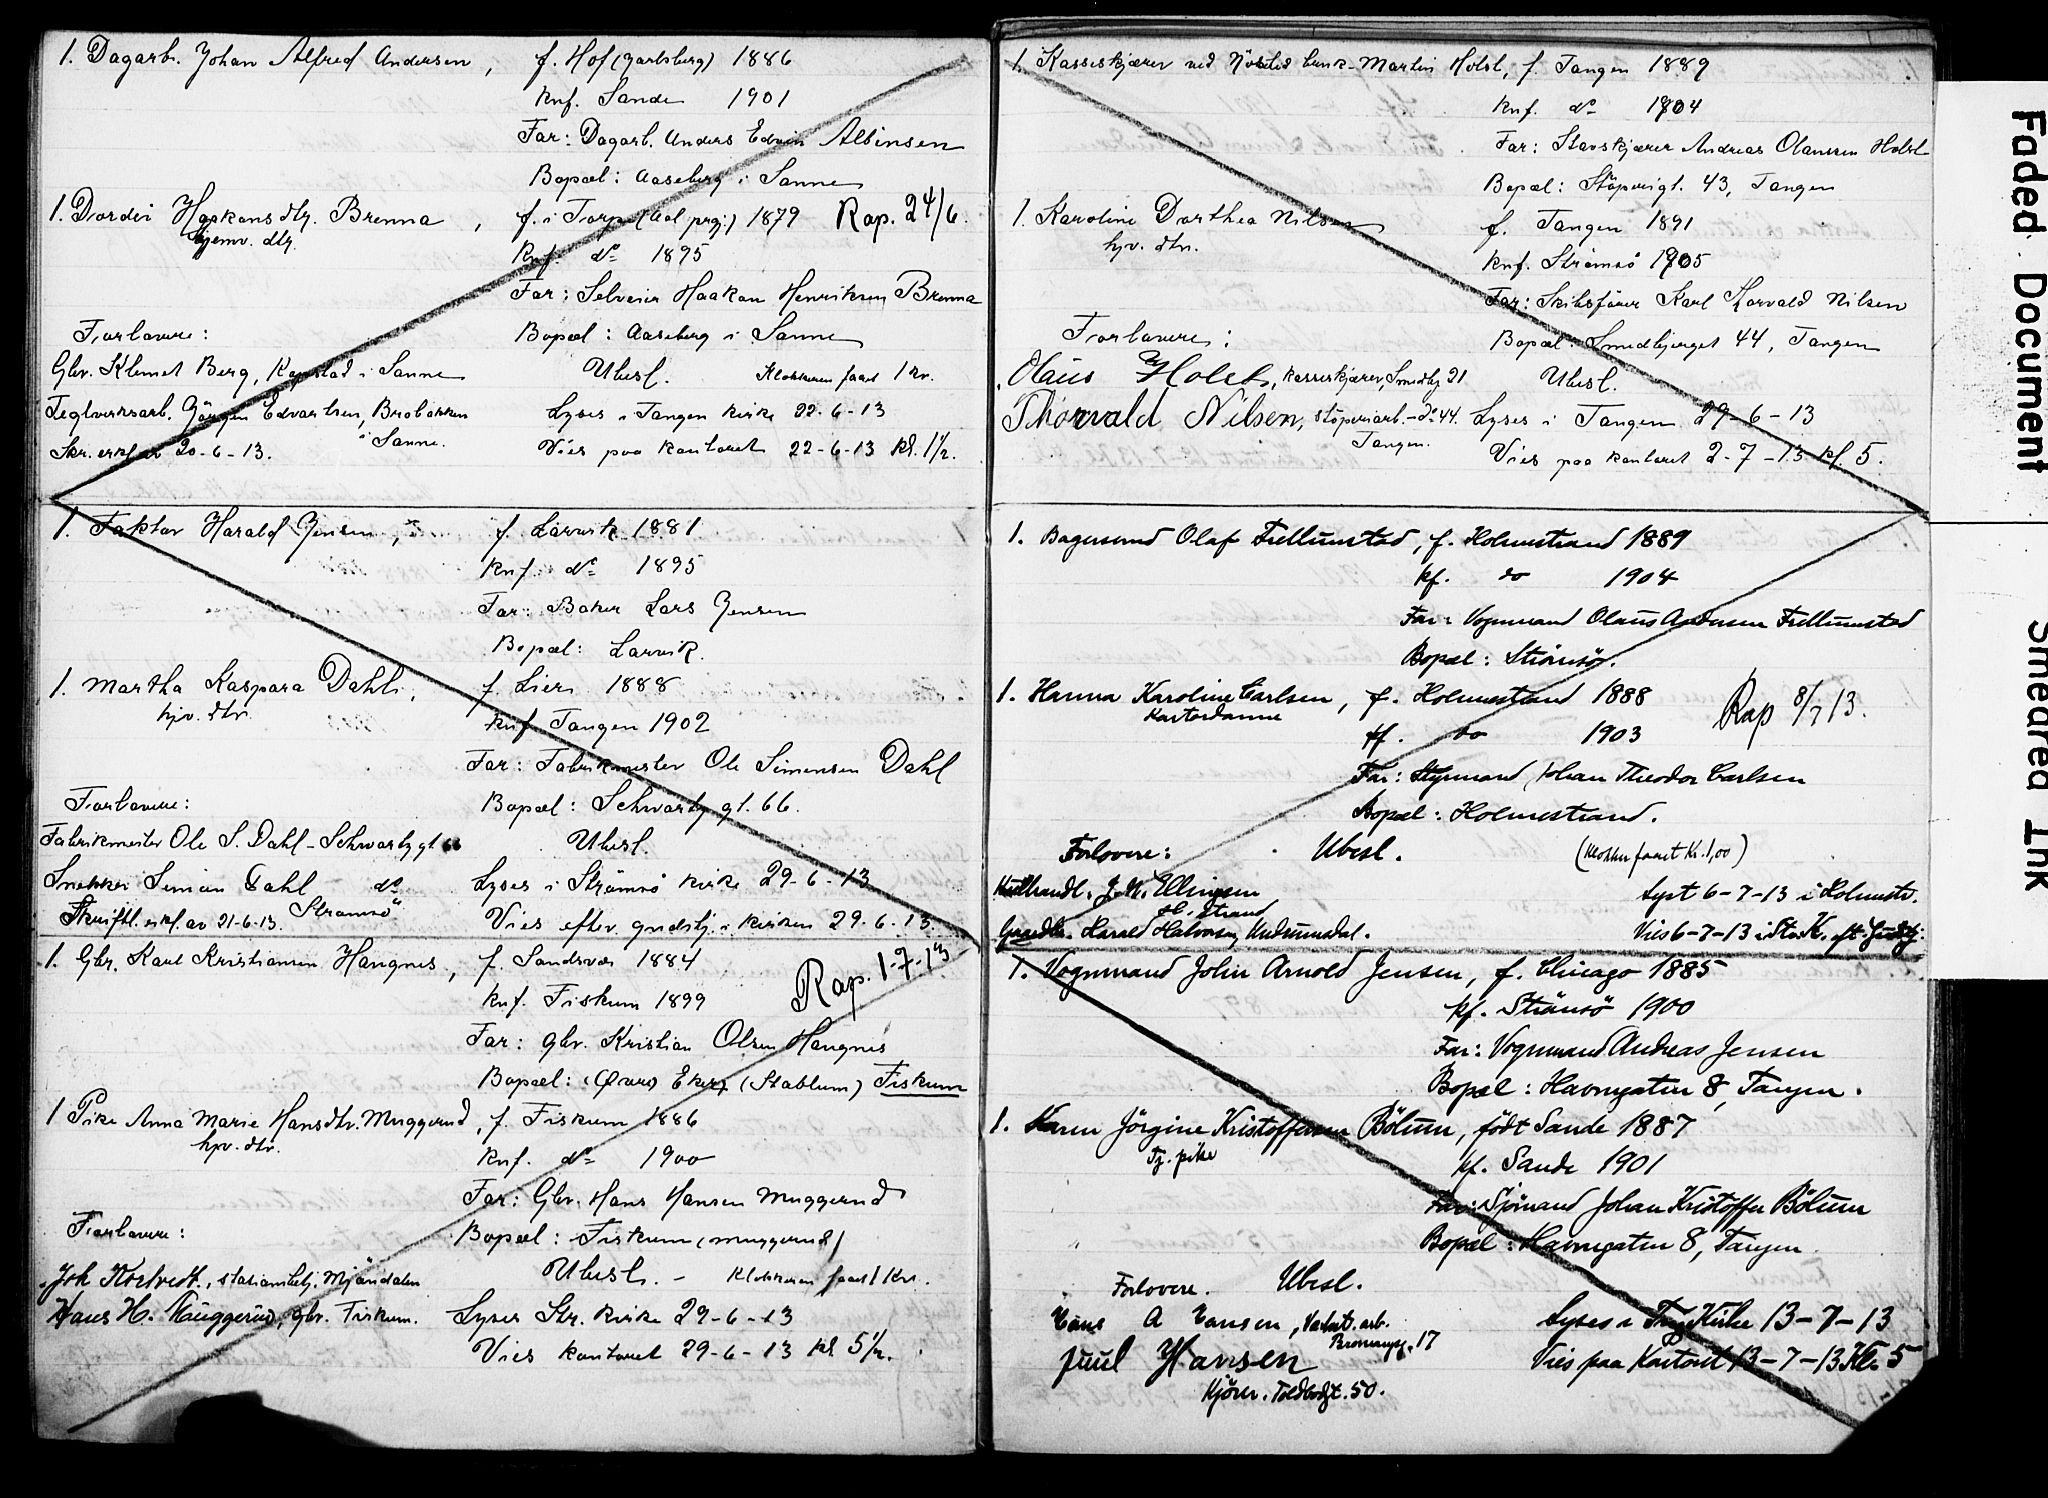 1. Dagarb. Johan Alfred Andersen, f. Hof (Jarlsberg) 1886
Knf. Sande 1901
Far: Dagarb. Anders Edvin Albinsen
Bopæl: Aaseberg i Sanne
1. Dordei Haakonsdtr. Brenna, f. i Torpe (Aal prgj.) 1879 Rap. 24/6.
hjemv. dtr.
Knf. do 1895
Far: Selveier Haakon Henriksen Brenna
Bopæl: Aaseberg i Sanne
Forlovere:
Gbr. Klemet Berg, Kopstad i Sanne
Ubesl. Klokkeren faaet 1 kr.
Teglverksarb. Jörgen Edvartsen, Brobakken i Sanne.
Lyses i Tangen kirke 22-6-13
Skr. erkl. av 20-6-13.
Vies paa kontoret 22-6-13 kl. 1½.
1. Faktor Harald Jensen, f. Larvik 1881
Knf. do 1895
Far: Baker Lars Jensen
Bopæl: Larvik.
1. Martha Kaspara Dahl, f. Lier 1888
hjv. dtr.
Knf. Tangen 1902
Far: Fabrikmester Ole Simensen Dahl
Bopæl: Schwartz gt. 66.
Forlovere:
Fabrikmester Ole S. Dahl - Schwartz gt 66
Ubesl.
Snekker Simon Dahl - do Strømsö
Lyses i Strømsö kirke 29-6-13
Skriftl. erkl. av 21-6-13.
Vies efter gudstj. i kirken 29.6.13.
1. Gbr. Karl Kristiansen Hangnes, f. Sandsvær 1884
Rap. 1-7-13
Knf. Fiskum 1899
Far: gbr. Kristian Olsen Hangnes
Bopæl: (Øvre) Eker (Stablum) Fiskum
1 Pike Anna Marie Hansdtr. Muggerud, f. Fiskum 1886
hjv. dtr.
Knf. do 1900
Far: Gbr. Hans Hansen Muggerud
Bopæl: Fiskum (Muggerud)
Forlovere:
Joh Kostvedt, stasjonsbetj. Mjöndalen
Ubesl. - Klokkeren faaet 1 Kr.
Hans H. Muggerud, gbr. Fiskum.
Lyses Str. kirke 29-6-13
Vies kontoret 29-6-13 kl. 5½.
1. Kasseskjærer ved Nöstedbruk - Martin Holst, f. Tangen 1889
Knf. do 1904
Far: Stavskjærer Andreas Olaussen Holst
Bopæl: Stöperigt. 43, Tangen
1. Karoline Dorthea Nilsen
f. Tangen 1891
hjv. dtr.
Knf. Strömsö 1905
Far: Skibsfører Karl Thorvald Nilsen
Bopæl: Smedbjerget 44, Tangen
Forlovere:
Olaus Holst, kasseskjærer, Smedbj 21
Ubesl.
Thorvald Nilsen, stöperiarb. - do 44. Tangen.
Lyses i Tangen 29-6-13
Vies paa kontoret 2-7-13 kl. 5.
1. Bagersvend Olaf Frellumstad, f. Holmestrand 1889
kf. do 1904
Far: Vognmand Olaus Andersen Frellumstad
Bopæl: Strömsö.
1. Hanna Karoline Carlsen, f. Holmestrand 1888
Kontordame
Rap 8/7 13.
kf. do 1903
Far: Styrmand Johan Theodor Carlsen
Bopæl: Holmestrand.
Forlovere:
Ubesl. (Klokker faaet Kr. 1,00)
J. N. Ellingsen H. strand
Lyst 6-7-13 i Holmestr.
Gaardbr. Harald Halvorsen, Undrumsdal.
Vies 6-7-13 i Str. K. eft. Gudstj.
1. Vognmand John Arnold Jensen, f. Chicago 1885
kf. Strömsö 1900
Far: Vognmand Andreas Jensen
Bopæl: Havnegaten 8, Tangen.
1. Karen Jörgine Kristoffersen Bölum, født Sande 1887
Tj. pike
kf. Sande 1901
Far: Sjömand Johan Kristoffer Bölum
Bopæl: Havnegaten 8, Tangen.
Forlovere. Ubesl.
Hans A Hansen, Verkst. arb. 17
Lyses i Tang. Kirke 13-7-13
Juul Hansen
Kjörer. Toldbodgt. 50.
Vies paa Kontoret 13-7-13 Kl. 5
Faded Document
Smeared Ink